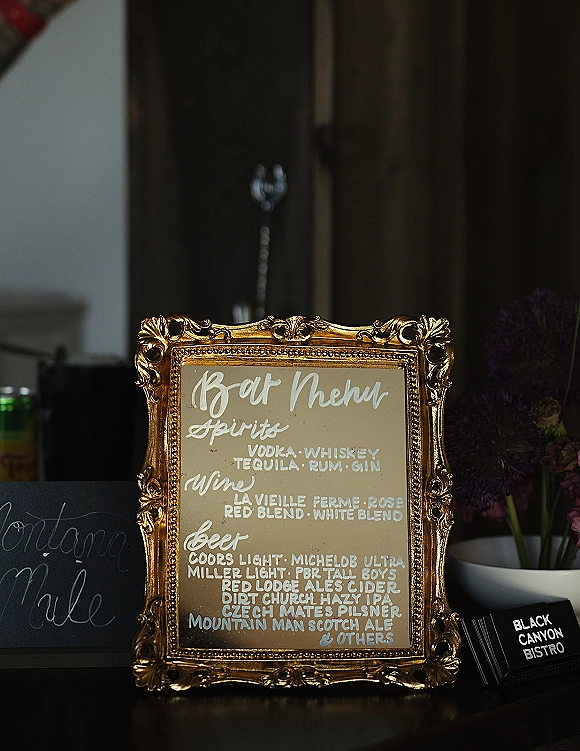 Bar Menu
Spirits
VODKA · WHISKEY
TEQUILA · RUM · GIN
Wine
LA VIEILLE FERME · ROSE
RED BLEND · WHITE BLEND
Beer
COORS LIGHT · MICHELOB ULTRA
MILLER LIGHT · PBR TALL BOYS
RED LODGE ALES CIDER
DIRT CHURCH HAZY IPA
CZECH MATES PILSNER
MOUNTAIN MAN SCOTCH ALE
& OTHERS
Montana
Mule
BLACK
CANYON
BISTRO